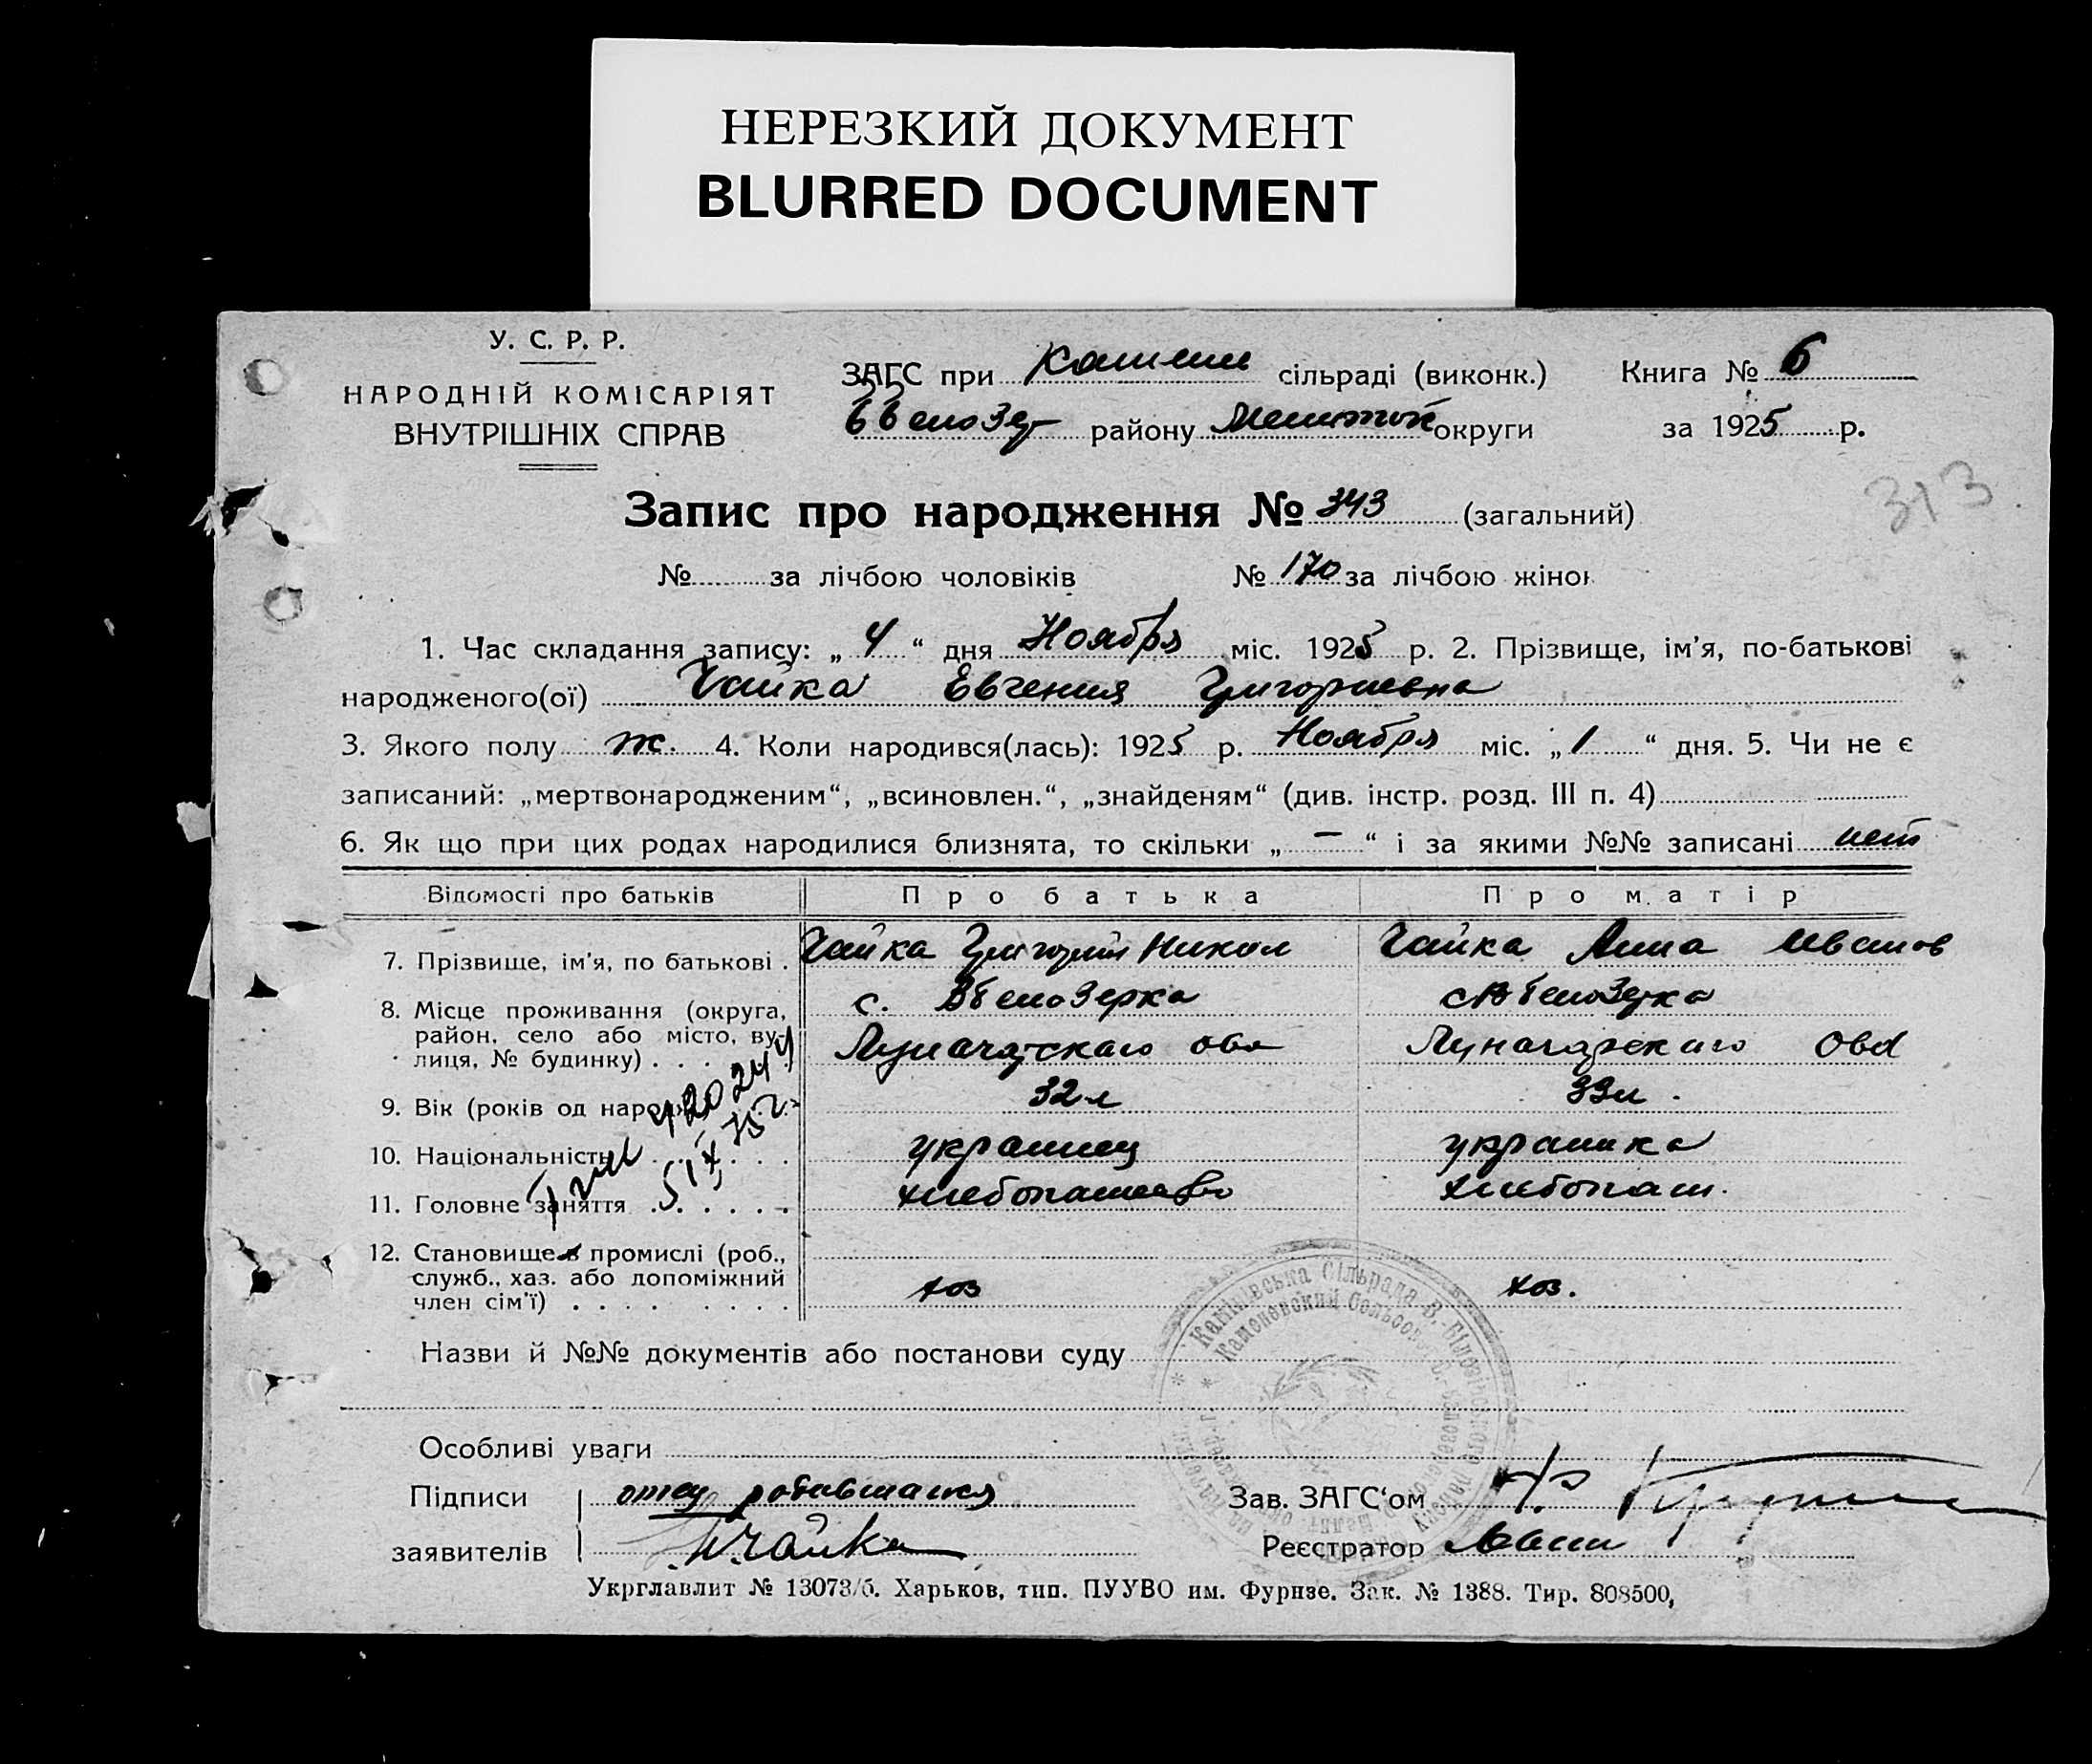 НЕРЕЗКИЙ ДОКУМЕНТ
BLURRED DOCUMENT
У. С. Р. Р.
НАРОДНІЙ КОМІСАРІЯТ
ВНУТРІШНІХ СПРАВ
ЗАГС при сільраді (виконк.)
району округи
Книга № 6
за 1925 р.
313
Запис про народження № 343 (загальний)
№ за лічбою чоловіків № 170 за лічбою жінок
1. Час складання запису: „ 4 “ дня Ноября міс. 1925 р. 2. Прізвище, ім'я, по-батькові
народженого(ої) Чайка Евгения Григориевна
3. Якого полу ж. 4. Коли народився(лась): 1925 р. Ноября міс. „ 1 “ дня. 5. Чи не є
записаний: „мертвонародженим“, „всиновлен.“, „знайденям“ (див. інстр. розд. III п. 4)
6. Як що при цих родах народилися близнята, то скільки „ — “ і за якими №№ записані нет
Відомості про батьків Про батька Про матір
7. Прізвище, ім'я, по батькові . Чайка Григорий Никол Чайка Анна Иванов
8. Місце проживання (округа, район, село або місто, вулиця, № будинку) . . . с. Вбелозерка
Луначарскаго Луначарскаго
9. Вік (років од народж. 32 л 33 л.
10. Національність украинец украинка
11. Головне заняття хлебопашество хлебопаш.
12. Становище в промислі (роб.,
служб., хаз. або допоміжний
член сім'ї) хоз хоз.
Назви й №№ документів або постанови суду
Кам'нівська Сільрада В.-Білозірського району
Каменовский Сельсов. В. Белозерского
Особливі уваги
Підписи отец родившагися Зав. ЗАГС'ом
заявителів Чайка Реєстратор
Укрглавлит № 13073/б. Харьков, тип. ПУУВО им. Фрунзе. Зак. № 1388. Тир. 808500,